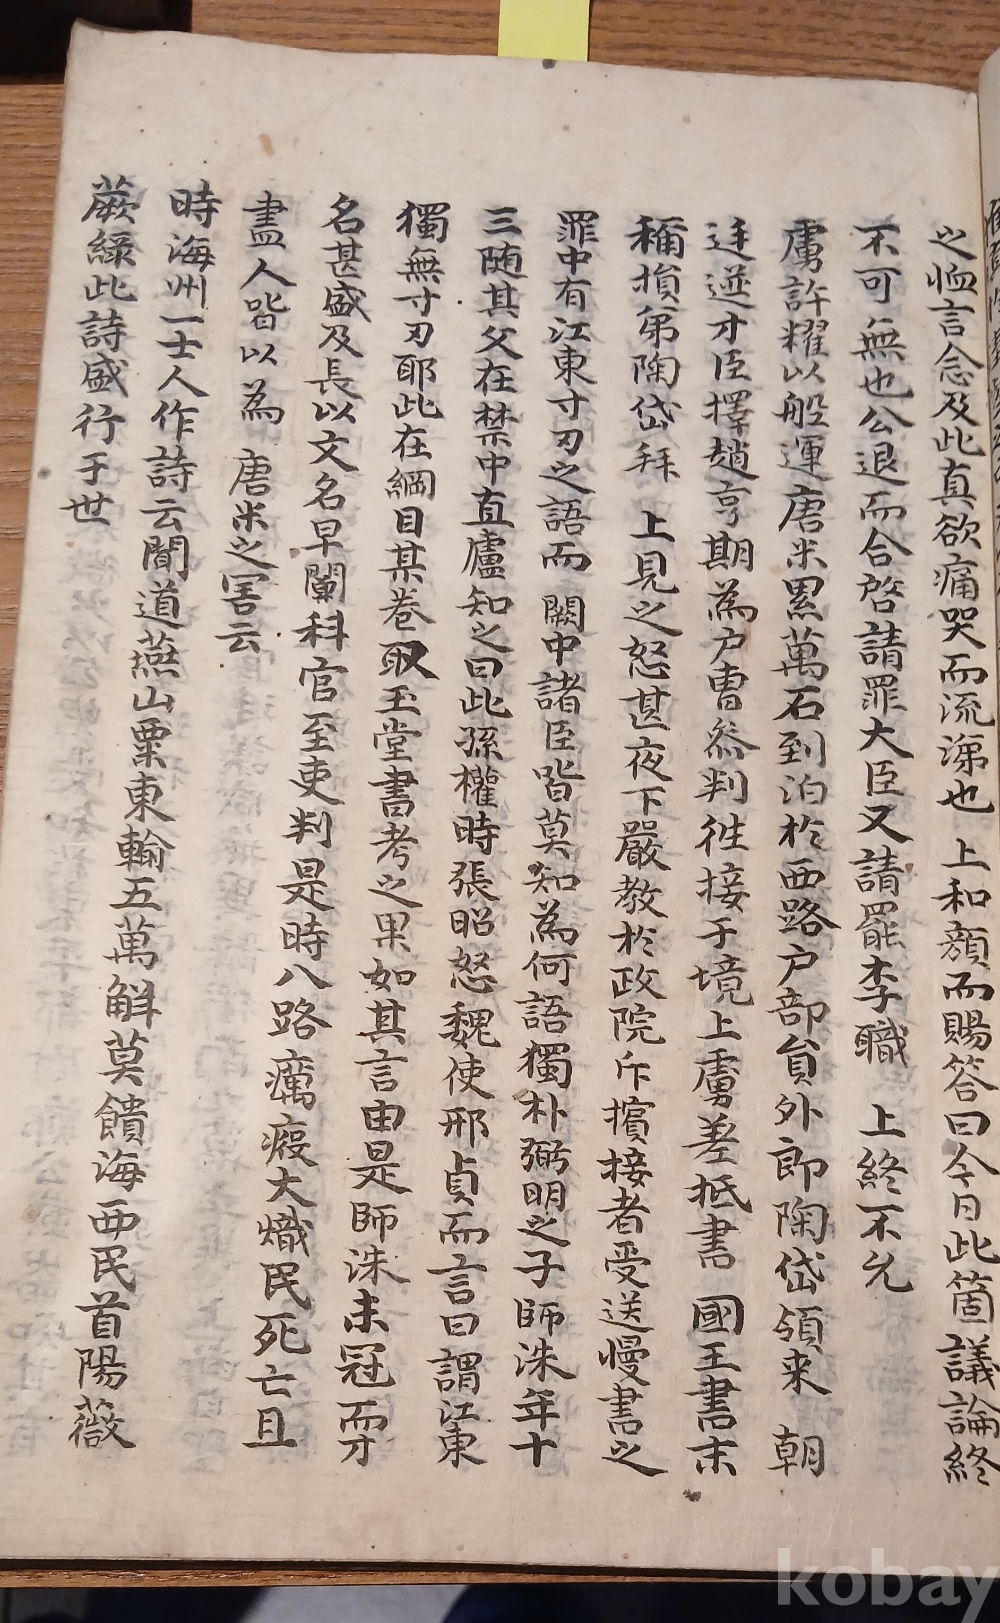 之恤言念及此真欲痛哭而流涕也 上和顔而賜答曰今日此箇議論終
不可無也公退而合啓請罪大臣又請罷李職 上終不允
虜許糶以船運唐米累萬石到泊於西路户部貟外郎陶岱領来 朝
廷遴才臣擇趙亨期為户曺叅判徃接于境上虜差抵書 國王書末
稱損弟陶岱拜 上見之怒甚夜下嚴教於政院斥擯接者受送慢書之
罪中有江東寸刃之語而闕中諸臣皆莫知為何語獨朴弼明之子師洙年十
三随其父在禁中直廬知之曰此孫權時張昭怒魏使邢貞而言曰謂江東
獨無寸刃耶此在綱目某卷取玉堂書考之果如其言由是師洙未冠而才
名甚盛及長以文名早闡科官至吏判是時八路癘疫大熾民死亡且
盡人皆以為 唐米之害云
時海州一士人作詩云聞道燕山粟東輸五萬斛莫饋海西民首陽薇
蕨緑此詩盛行于世
kobay